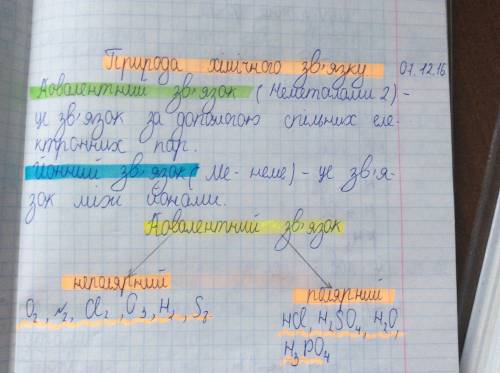 Природа хімічного зв'язку 07.12.16
Ковалентний зв'язок (Неметалами 2) -
це зв'язок за допомогою спільних еле-
ктронних пар.
Йонний зв'язок (Ме - неме) - це зв'я-
зок між йонами.
Ковалентний зв'язок
неполярний полярний
O₂, N₂, Cl₂, O₃, H₂, S₈ HCl, H₂SO₄, H₂O,
H₃PO₄